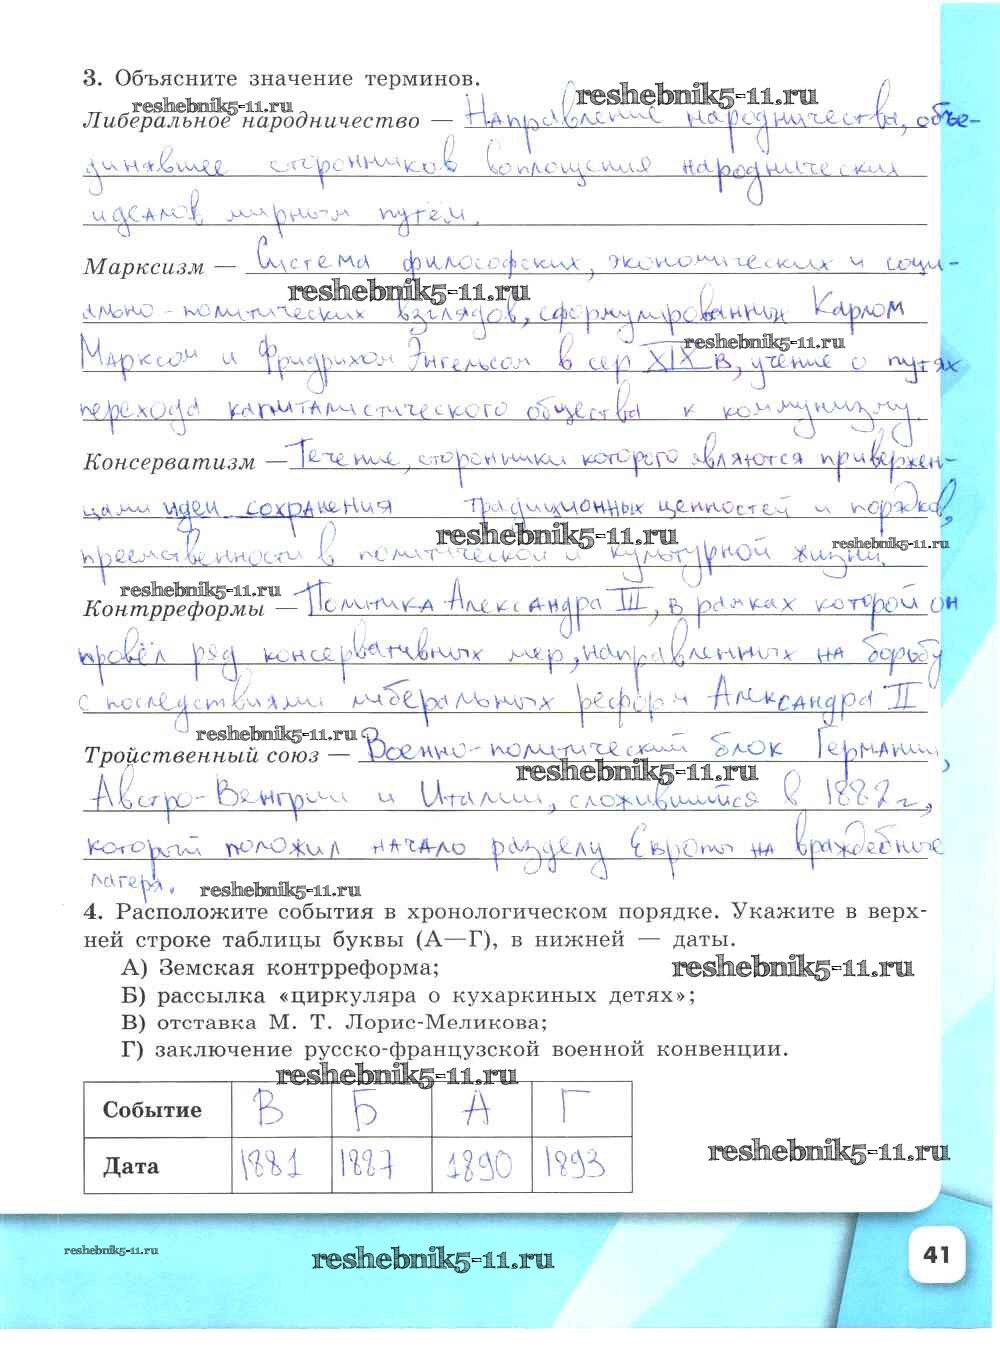 3. Объясните значение терминов.
reshebnik5-11.ru
reshebnik5-11.ru
Либеральное народничество — Направление народничества, объе-
динявшее сторонников воплощения народнических
идеалов мирным путём.
Марксизм — Система философских, экономических и соци-
reshebnik5-11.ru
ально-политических взглядов, сформулированных Карлом
reshebnik5-11.ru
Марксом и Фридрихом Энгельсом в сер XIX в, учение о путях
перехода капиталистического общества к коммунизму.
Консерватизм — Течение, сторонники которого являются привержен-
цами идеи сохранения традиционных ценностей и порядков,
reshebnik5-11.ru
reshebnik5-11.ru
преемственности в политической и культурной жизни.
reshebnik5-11.ru
Контрреформы — Политика Александра III, в рамках которой он
провёл ряд консервативных мер, направленных на борьбу
с последствиями либеральных реформ Александра II
reshebnik5-11.ru
Тройственный союз — Военно-политический блок Германии,
reshebnik5-11.ru
Австро-Венгрии и Италии, сложившийся в 1882 г,
который положил начало разделу Европы на враждебные
лагеря.
reshebnik5-11.ru
4. Расположите события в хронологическом порядке. Укажите в верх-
ней строке таблицы буквы (А—Г), в нижней — даты.
А) Земская контрреформа;
reshebnik5-11.ru
Б) рассылка «циркуляра о кухаркиных детях»;
В) отставка М. Т. Лорис-Меликова;
Г) заключение русско-французской военной конвенции.
reshebnik5-11.ru
Событие В Б А Г
Дата 1881 1887 1890 1893
reshebnik5-11.ru
reshebnik5-11.ru
reshebnik5-11.ru
41